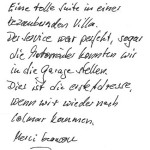 Eine tolle Suite in einer
bezaubernden Villa.
Der Service war perfekt, sogar
die Motorräder konnten wir
in die Garage stellen.
Dies ist die erste Adresse,
wenn wir wieder nach
Colmar kommen.
Merci